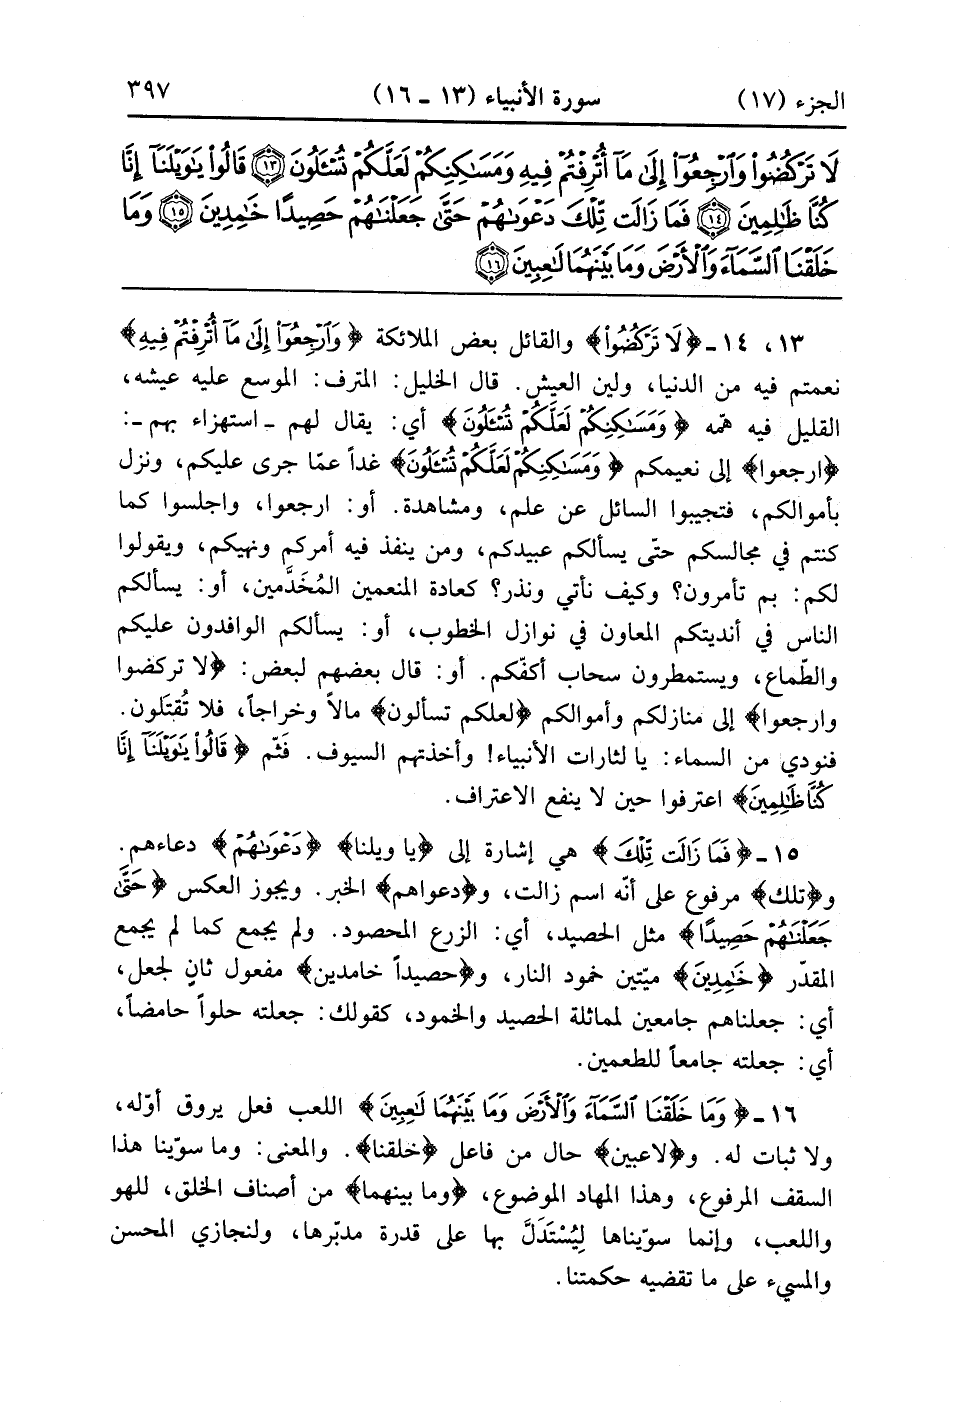 الجزء (١٧) سورة الأنبياء (١٣ ـ ١٦) ٣٩٧
لَا تَرْكُضُوا۟ وَٱرْجِعُوٓا۟ إِلَىٰ مَآ أُتْرِفْتُمْ فِيهِ وَمَسَـٰكِنِكُمْ لَعَلَّكُمْ تُسْـَٔلُونَ ١٣ قَالُوا۟ يَـٰوَيْلَنَآ إِنَّا
كُنَّا ظَـٰلِمِينَ ١٤ فَمَا زَالَت تِّلْكَ دَعْوَىٰهُمْ حَتَّىٰ جَعَلْنَـٰهُمْ حَصِيدًا خَـٰمِدِينَ ١٥ وَمَا
خَلَقْنَا ٱلسَّمَآءَ وَٱلْأَرْضَ وَمَا بَيْنَهُمَا لَـٰعِبِينَ ١٦
١٣، ١٤ ـ ﴿لَا تَرْكُضُوا۟﴾ والقائل بعض الملائكة ﴿وَٱرْجِعُوٓا۟ إِلَىٰ مَآ أُتْرِفْتُمْ فِيهِ﴾
نعمتم فيه من الدنيا، ولين العيش. قال الخليل: المترف: الموسع عليه عيشه،
القليل فيه همّه ﴿وَمَسَـٰكِنِكُمْ لَعَلَّكُمْ تُسْـَٔلُونَ﴾ أي: يقال لهم ـ استهزاء بهم ـ:
﴿ارجعوا﴾ إلى نعيمكم ﴿وَمَسَـٰكِنِكُمْ لَعَلَّكُمْ تُسْـَٔلُونَ﴾ غداً عمّا جرى عليكم، ونزل
بأموالكم، فتجيبوا السائل عن علم، ومشاهدة. أو: ارجعوا، واجلسوا كما
كنتم في مجالسكم حتّى يسألكم عبيدكم، ومن ينفذ فيه أمركم ونهيكم، ويقولوا
لكم: بم تأمرون؟ وكيف نأتي ونذر؟ كعادة المنعمين المُخَدَّمين، أو: يسألكم
الناس في أنديتكم المعاون في نوازل الخطوب، أو: يسألكم الوافدون عليكم
والطّماع، ويستمطرون سحاب أكفّكم. أو: قال بعضهم لبعض: ﴿لا تركضوا
وارجعوا﴾ إلى منازلكم وأموالكم ﴿لعلكم تسألون﴾ مالاً وخراجاً، فلا تُقتَلون.
فنودي من السماء: يا لثارات الأنبياء! وأخذتهم السيوف. فَثَم ﴿قَالُوا۟ يَـٰوَيْلَنَآ إِنَّا
كُنَّا ظَـٰلِمِينَ﴾ اعترفوا حين لا ينفع الاعتراف.
١٥ ـ ﴿فَمَا زَالَت تِّلْكَ﴾ هي إشارة إلى ﴿يا ويلنا﴾ ﴿دَعْوَىٰهُمْ﴾ دعاءهم.
و﴿تلك﴾ مرفوع على أنّه اسم زالت، و﴿دعواهم﴾ الخبر. ويجوز العكس ﴿حَتَّىٰ
جَعَلْنَـٰهُمْ حَصِيدًا﴾ مثل الحصيد، أي: الزرع المحصود. ولم يجمع كما لم يجمع
المقدّر ﴿خَـٰمِدِينَ﴾ ميّتين خمود النار، و﴿حصيداً خامدين﴾ مفعول ثانٍ لجعل،
أي: جعلناهم جامعين لمماثلة الحصيد والخمود، كقولك: جعلته حلواً حامضاً،
أي: جعلته جامعاً للطعمين.
١٦ ـ ﴿وَمَا خَلَقْنَا ٱلسَّمَآءَ وَٱلْأَرْضَ وَمَا بَيْنَهُمَا لَـٰعِبِينَ﴾ اللعب فعل يروق أوّله،
ولا ثبات له. و﴿لاعبين﴾ حال من فاعل ﴿خلقنا﴾. والمعنى: وما سوّينا هذا
السقف المرفوع، وهذا المهاد الموضوع، ﴿وما بينهما﴾ من أصناف الخلق، للهو
واللعب، وإنما سوّيناها لِيُسْتَدَلَّ بها على قدرة مدبّرها، ولنجازي المحسن
والمسيء على ما تقضيه حكمتنا.